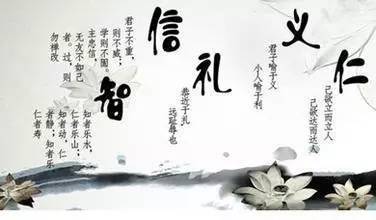 仁
己欲立而立人
己欲达而达人
义
君子喻于义
小人喻于利
礼
恭近于礼
远耻辱也
信
君子不重，
则不威；
学则不固。
主忠信，
无友不如己
者。过，则
勿惮改
智
知者乐水，
仁者乐山；
知者动，仁
者静；知者乐
仁者寿